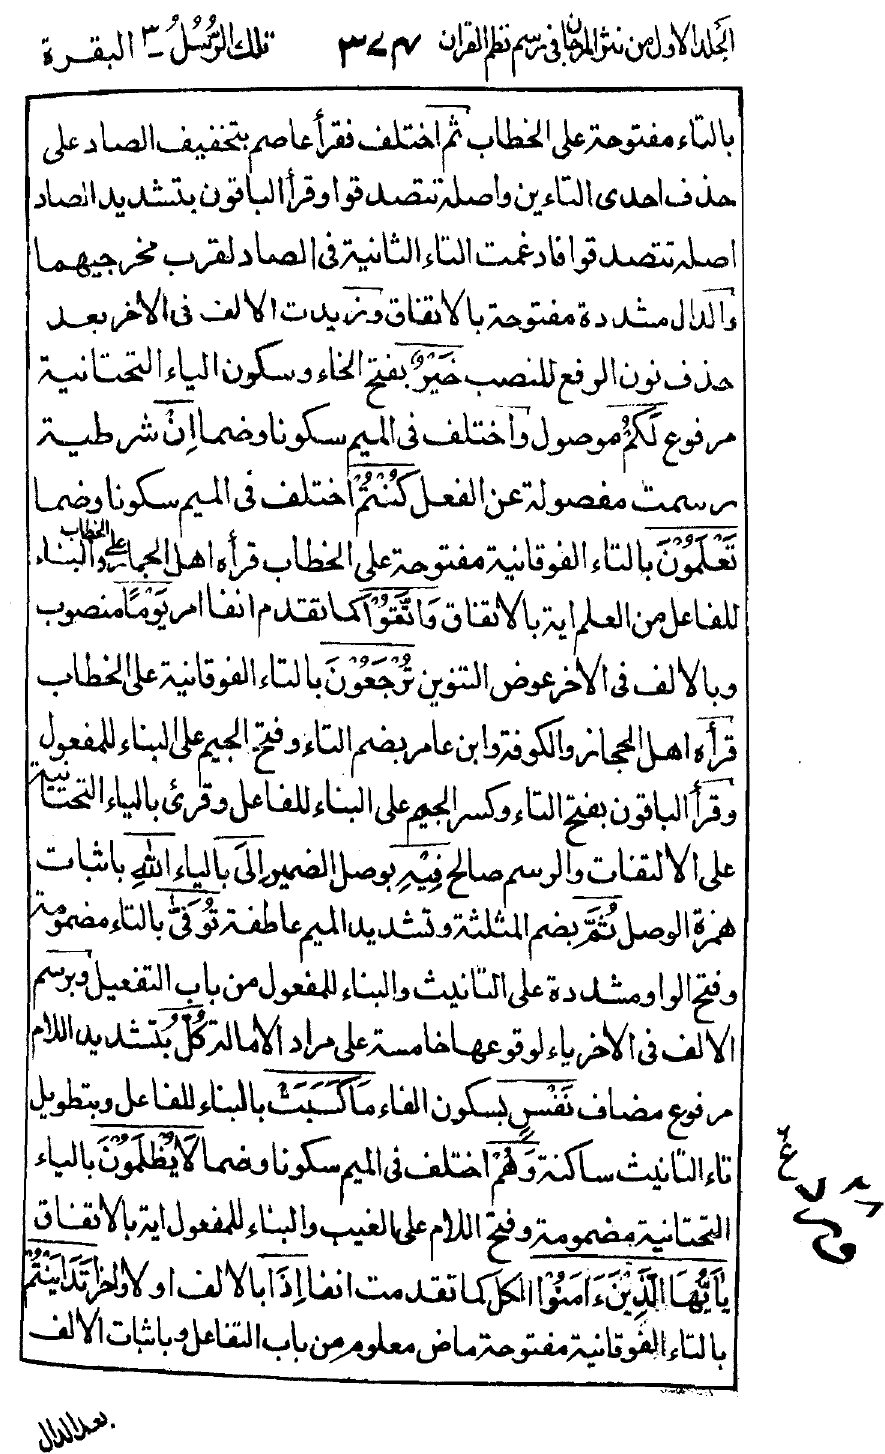 الجلد الاول من نثر المرجان فى رسم نظم القران ٣٧٤ تلك الرسل ٣ البقرة
بالتاء مفتوحة على الخطاب ثم اختلف فقرأ عاصم بتخفيف الصاد على
حذف احدى التاءين واصله تتصدقوا وقرأ الباقون بتشديد الصاد
اصله تتصدقوا فادغمت التاء الثانية فى الصاد لقرب مخرجيهما
والدال مشددة مفتوحة بالاتفاق وزيدت الالف فى الاخر بعد
حذف نون الرفع للنصب خَيْرٌ بفتح الخاء وسكون الياء التحتانية
مرفوع لَكُمْ موصول واختلف فى الميم سكونا وضما اِنْ شرطية
رسمت مفصولة عن الفعل كُنْتُمْ اختلف فى الميم سكونا وضما
تَعْلَمُوْنَ بالتاء الفوقانية مفتوحة على الخطاب قرأه اهل الحجاز على الخطاب والبناء
للفاعل من العلم اية بالاتفاق وَاتَّقُوْا كما تقدم انفا امر يَوْمًا منصوب
وبالالف فى الاخر عوض التنوين تُرْجَعُوْنَ بالتاء الفوقانية على الخطاب
قرأه اهل الحجاز والكوفة وابن عامر بضم التاء وفتح الجيم على البناء للمفعول
وقرأ الباقون بفتح التاء وكسر الجيم على البناء للفاعل وقرئ بالياء التحتانية
على الالتفات والرسم صالح فِيْهِ بوصل الضمير اِلَى بالياء اللهِ باثبات
همزة الوصل ثُمَّ بضم المثلثة وتشديد الميم عاطفة تُوَفّٰى بالتاء مضمومة
وفتح الواو مشددة على التانيث والبناء للمفعول من باب التفعيل وبرسم
الالف فى الاخر ياء لوقوعها خامسة على مراد الامالة كُلُّ بتشديد اللام
مرفوع مضاف نَفْسٍ بسكون الفاء مَا كَسَبَتْ بالبناء للفاعل وبتطويل
تاء التانيث ساكنة وَهُمْ اختلف فى الميم سكونا وضما لَا يُظْلَمُوْنَ بالياء
التحتانية مضمومة وفتح اللام على الغيب والبناء للمفعول اية بالاتفاق
يٰاَيُّهَا الَّذِيْنَ ءَامَنُوْا الكل كما تقدمت انفا اِذَا بالالف اولا واخرا تَدَايَنْتُمْ
بالتاء الفوقانية مفتوحة ماض معلوم من باب التفاعل وباثبات الالف
بعد الدال